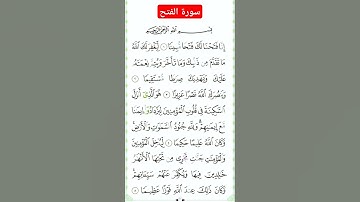 سورة الفتح
بِسْمِ اللَّهِ الرَّحْمَٰنِ الرَّحِيمِ
إِنَّا فَتَحْنَا لَكَ فَتْحًا مُّبِينًا ١ لِّيَغْفِرَ لَكَ اللَّهُ
مَا تَقَدَّمَ مِن ذَنۢبِكَ وَمَا تَأَخَّرَ وَيُتِمَّ نِعْمَتَهُۥ
عَلَيْكَ وَيَهْدِيَكَ صِرَٰطًا مُّسْتَقِيمًا ٢
وَيَنصُرَكَ اللَّهُ نَصْرًا عَزِيزًا ٣ هُوَ الَّذِىٓ أَنزَلَ
السَّكِينَةَ فِى قُلُوبِ الْمُؤْمِنِينَ لِيَزْدَادُوٓا۟ إِيمَٰنًا
مَّعَ إِيمَٰنِهِمْ وَلِلَّهِ جُنُودُ السَّمَٰوَٰتِ وَالْأَرْضِ
وَكَانَ اللَّهُ عَلِيمًا حَكِيمًا ٤ لِّيُدْخِلَ الْمُؤْمِنِينَ
وَالْمُؤْمِنَٰتِ جَنَّٰتٍ تَجْرِى مِن تَحْتِهَا الْأَنْهَٰرُ
خَٰلِدِينَ فِيهَا وَيُكَفِّرَ عَنْهُمْ سَيِّـَٔاتِهِمْ
وَكَانَ ذَٰلِكَ عِندَ اللَّهِ فَوْزًا عَظِيمًا ٥